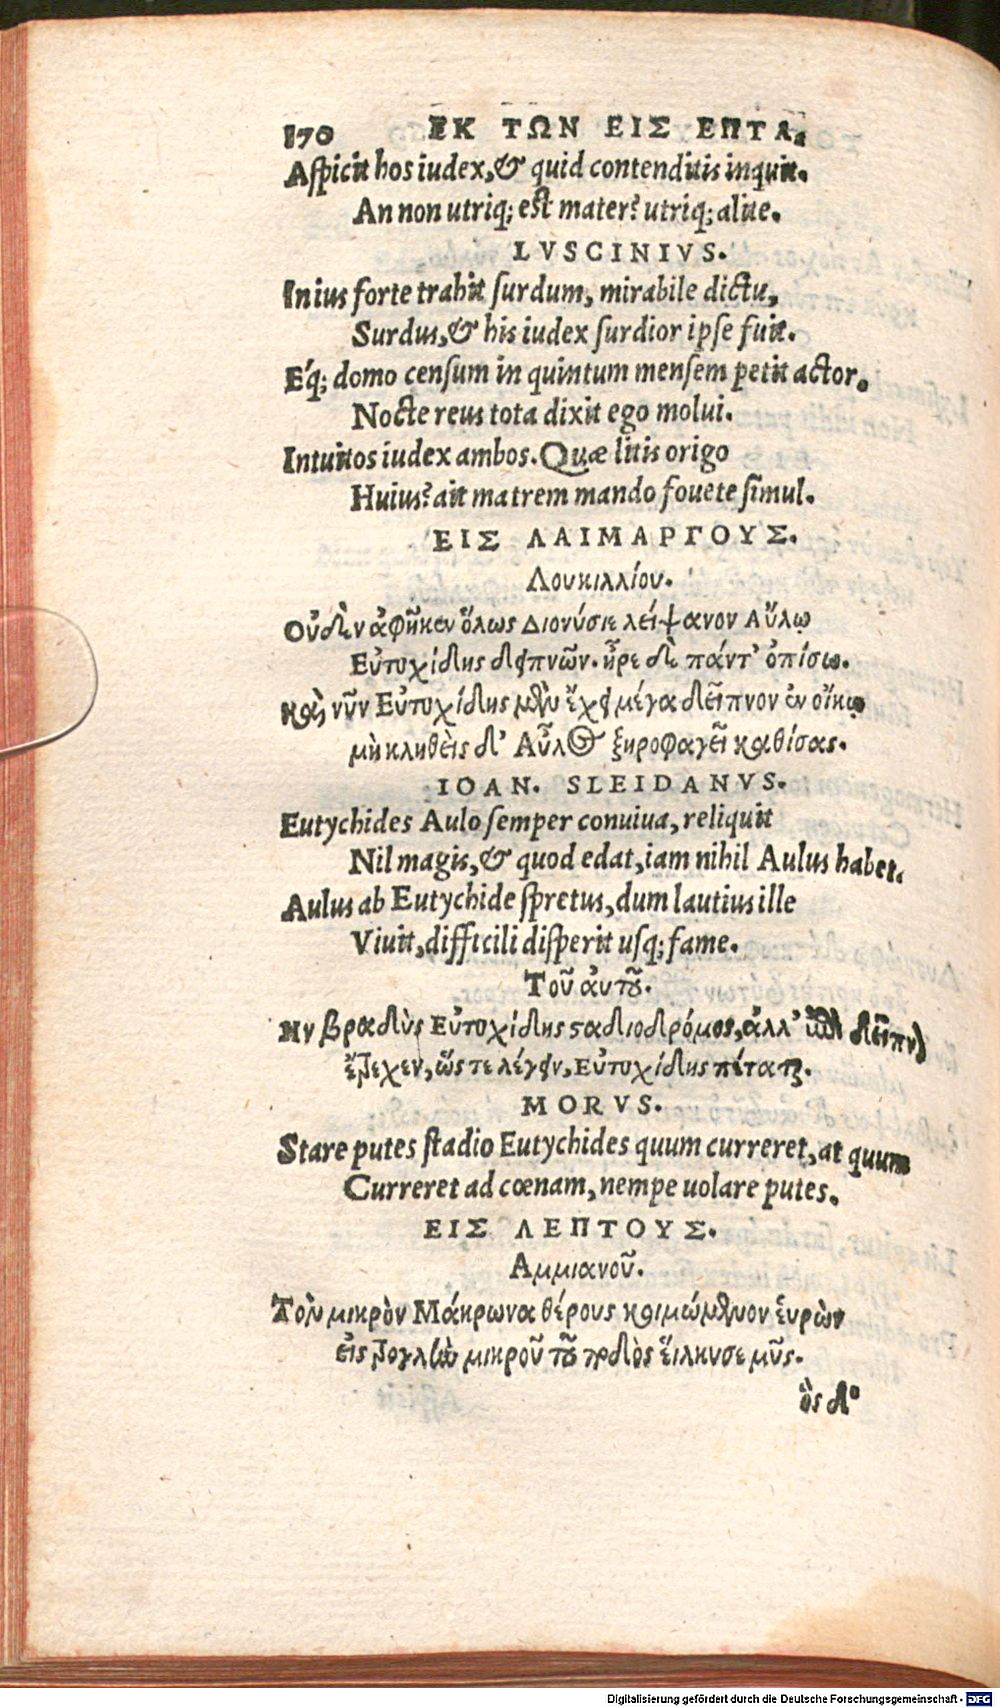 170 ΕΚ ΤΩΝ ΕΙΣ ΕΠΤΑ.
Aſpicit hos iudex, & quid contenditis inquit.
An non utriq; eſt mater? utriq; alite.
LVSCINIVS.
In ius forte trahit ſurdum, mirabile dictu,
Surdus, & his iudex ſurdior ipſe fuit.
Eq́; domo cenſum in quintum menſem petit actor.
Nocte reus tota dixit ego molui.
Intuitos iudex ambos. Quæ litis origo
Huius? ait matrem mando fouete ſimul.
ΕΙΣ ΛΑΙΜΑΡΓΟΥΣ.
Λουκιλλίου.
Οὐδὲν ἀφῆκεν ὅλως Διονύσιε λείψανον Αὔλῳ
Εὐτυχίδης δειπνῶν. ἦρε δὲ πάντ' ὀπίσω.
καὶ νῦν Εὐτυχίδης μὲν ἔχει μέγα δεῖπνον ἐν οἴκῳ
μὴ κληθεὶς δ' Αὖλος ξηροφαγεῖ καθίσας.
IOAN. SLEIDANVS.
Eutychides Aulo ſemper conuiua, reliquit
Nil magis, & quod edat, iam nihil Aulus habet.
Aulus ab Eutychide ſpretus, dum lautius ille
Viuit, difficili diſperit uſq; fame.
Τοῦ ἀυτοῦ.
Ην βραδὺς Εὐτυχίδης σταδιοδρόμος, ἀλλ' ἐπὶ δεῖπνον
ἔτρεχεν, ὥς τε λέγειν, Εὐτυχίδης πέταται.
MORVS.
Stare putes ſtadio Eutychides quum curreret, at quum
Curreret ad cœnam, nempe uolare putes.
ΕΙΣ ΛΕΠΤΟΥΣ.
Αμμιανοῦ.
Τὸν μικρὸν Μάκρωνα θέρους κοιμώμενον ἑυρὼν
εἰς τρογλίω μικροῦ τοῦ ποδὸς εἵλκυσε μῦς.
ὃς δ'
Digitalisierung gefördert durch die Deutsche Forschungsgemeinschaft - DFG